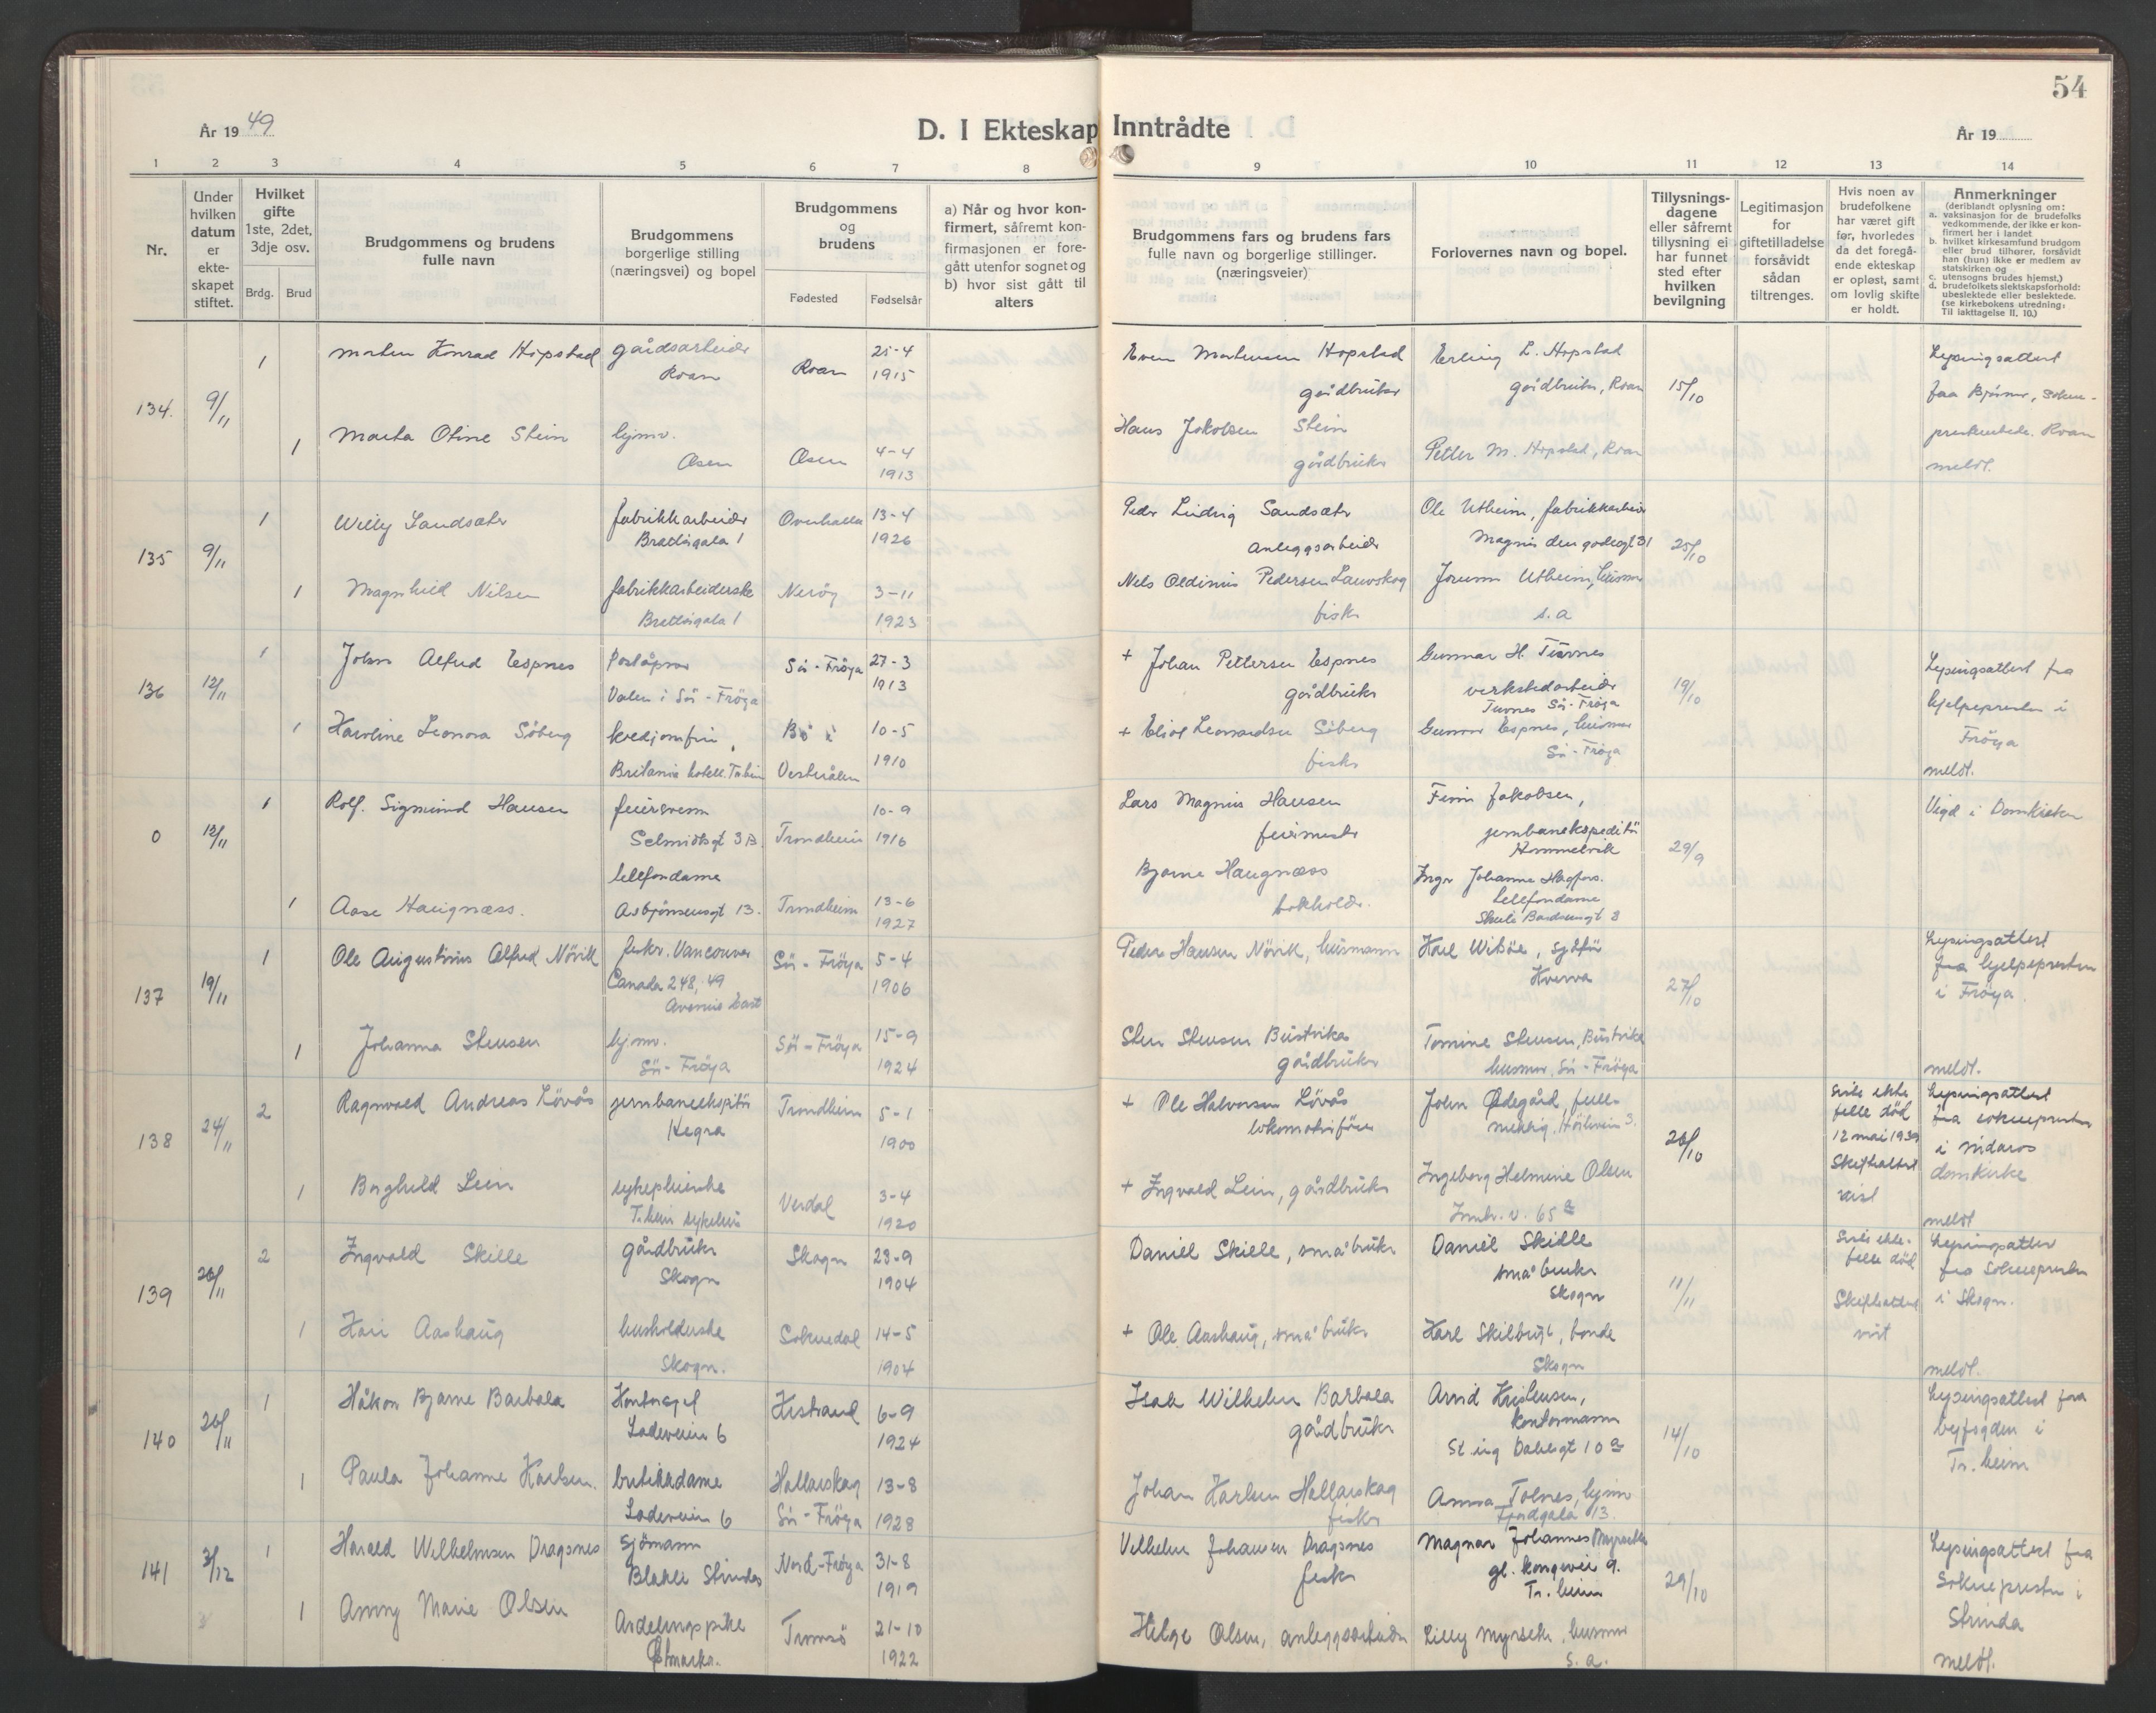 54
År 19 49
D. I Ekteskap Inntrådte
År 19
1 2 3 4 5 6 7 8 9 10 11 12 13 14
Nr.
Under hvilken datum er ekte-skapet stiftet.
Hvilket gifte 1ste, 2det, 3dje osv.
Brdg. Brud
Brudgommens og brudens fulle navn
Brudgommens borgerlige stilling (næringsvei) og bopel
Brudgommens og brudens
Fødested Fødselsår
a) Når og hvor kon-firmert, såfremt kon-firmasjonen er fore-gått utenfor sognet og
b) hvor sist gått til alters
Brudgommens fars og brudens fars fulle navn og borgerlige stillinger. (næringsveier)
Forlovernes navn og bopel.
Tillysnings-dagene eller såfremt tillysning ei har funnet sted efter hvilken bevilgning
Legitimasjon for giftetilladelse forsåvidt sådan tiltrenges.
Hvis noen av brudefolkene har været gift før, hvorledes da det foregå-ende ekteskap er opløst, samt om lovlig skifte er holdt.
Anmerkninger
(deriblandt oplysning om:
a. vaksinasjon for de brudefolks vedkommende, der ikke er kon-firmert her i landet
b. hvilket kirkesamfund brudgom eller brud tilhører, forsåvidt han (hun) ikke er medlem av statskirken og
c. utensogns brudes hjemst.)
d. brudefolkets slektskapsforhold: ubeslektede eller beslektede.
(se kirkebokens utredning: Til iakttagelse II, 10.)
134. 9/11
1 Morten Konrad Hopstad gårdsarbeider Roan Roan 25-4 1915
Even Mortensen Hopstad gårdbruker
Erling L. Hopstad gårdbruker, Roan
15/10
Lysingsattest fra Bjørnør, sokne-prestembede. Roan meldt.
1 Marta Otine Stein hjmv. Osen Osen 4-4 1913
Hans Jakobsen Stein gårdbruker
Petter M. Hopstad, Roan
135 9/11
1 Willy Sandsæter fabrikkarbeider Brattørgata 1 Overhalla 13-4 1926
Peder Ludvig Sandsæter anleggsarbeider
Ole Utheim, fabrikkarbeider Magnus den godesgt 31
25/10
1 Magnhild Nilsen fabrikkarbeiderske Brattørgata 1 Nerøy 3-11 1923
Nels Oldinus Pedersen Lauvskog fisker
Jorunn Utheim, husmor s.a
136 12/11
1 John Alfred Espnes Poståpner Valen i Sör-Fröya Sör-Fröya 27-3 1913
+ Johan Pettersen Espnes gårdbruker
Gunnar H. Tuvnes verkstedarbeider Tuvnes Sör-Fröya
19/10
Lysingsattest fra hjelpepresten i Fröya meldt.
1 Karoline Leonora Söberg kredjomfru, Britania hotell. T.heim Bö i Vesterålen 10-5 1910
+ Eliot Leonardsen Söberg fisker
Gunvor Espnes, husmor Sör-Fröya
0 12/11
1 Rolf. Sigmund Hansen feiersvenn Selmidtsgt 3 B. Trondheim 10-9 1916
Lars Magnus Hansen feiermester
Finn Jakobsen, jernbaneekspeditör Hommelvik
29/9
Vigd i Domkirken
1 Aase Haugnæss. telefondame Asbjörnsensgt 13. Trondheim 13-6 1927
Bjarne Haugnæss bokholder.
Inger Johanne Hagfors. telefondame Skule Baardssönsgt 8
137 19/11
1 Ole Augustinus Alfred Növik fisker. Vancouver Canada 248, 49 Avenue East Sör-Fröya 5-4 1906
Peder Hansen Növik, husmann
Karl Wiböe, sjåför Kverva
27/10
Lysingsattest fra hjelpepresten i Fröya. meldt.
1 Johanna Stensen hjmv. Sör-Fröya Sör-Fröya 15-9 1924
Sten Stensen Bustvika gårdbruker
Tomine Stensen, Bustvika husmor, Sör-Fröya
138 24/11
2 Ragnvald Andreas Lövås jernbaneekspeditör Hegra Trondheim 5-1 1900
+ Ole Halvorsen Lövås lokomotivförer
John Ødegård, full-mektig
26/10
siste ekte-felle död 12 mai 1939 Skifteattest vist
Lysingsattest fra soknepresten i Nidaros domkirke meldt
1 Borghild Lein sykepleierske T.heim sykehus Verdal 3-4 1920
+ Ingvald Lein, gårdbruker
Ingeborg Helmine Olsen Innh. v. 65 a
139 26/11
2 Ingvald Skille gårdbruker Skogn Skogn 23-9 1904
Daniel Skille, småbruker
Daniel Skille småbruker Skogn
11/11
Siste ekte-felle död Skifteattest vist
Lysingsattest fra Soknepresten i Skogn. meldt.
1 Kari Aashaug husholderske Skogn. Soknedal 14-5 1904
+ Ole Aashaug, småbruker
Karl Skilbrigt, bonde Skogn
140 26/11
1 Håkon Bjarne Barbala Kontorsjef Ladeveien 6 Hestrand 6-9 1924
Isak Wilhelm Barbala gårdbruker
Arvid Kristensen, kontormann St. ing Dahlsgt 10 a
14/10
Lysingsattest fra byfogden i Tr.heim
1 Paula Johanne Karlsen. butikkdame Ladeveien 6 Hallarskog Sör-Fröya 13-8 1928
Johan Karlsen Hallarskog fisker
Anna Tolnes, hjmv Fjordgata 13.
141 3/12
1 Harald Wilhelmsen Dragsnes Sjömann Blakli Strinda Nord-Fröya 31-8 1919
Vilhelm Johansen Dragsnes fisker
Magnar Johannes Myrseter gl. kongevei 9. Tr.heim
29/10
Lysingsattest fra Soknepresten i Strinda meldt.
1 Anny Marie Olsen Avdelingspike Østmarka. Tromsö 21-10 1922
Helge Olsen, anleggsarbeider
Lilly Myrseter, husmor s.a.